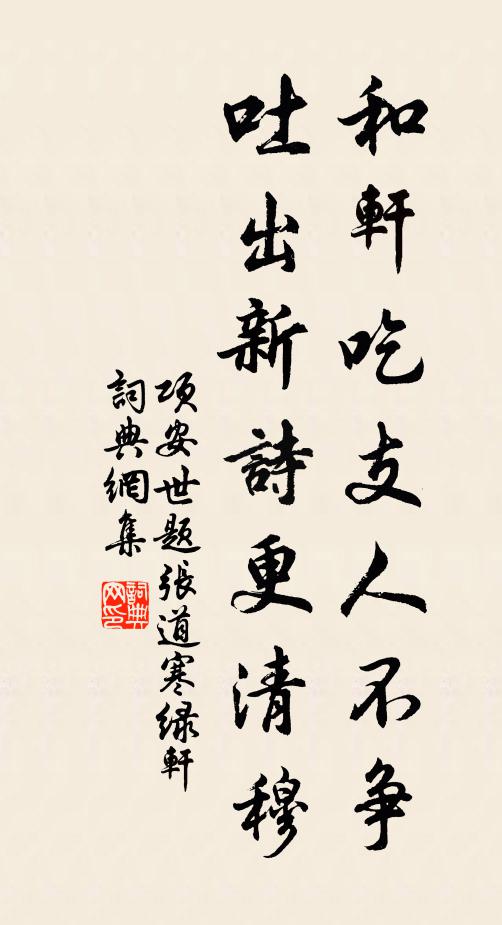 和軒吃支人不争
吐出新詩更清穆
項安世題張道寒緑軒
詞典網集
詞典
网印